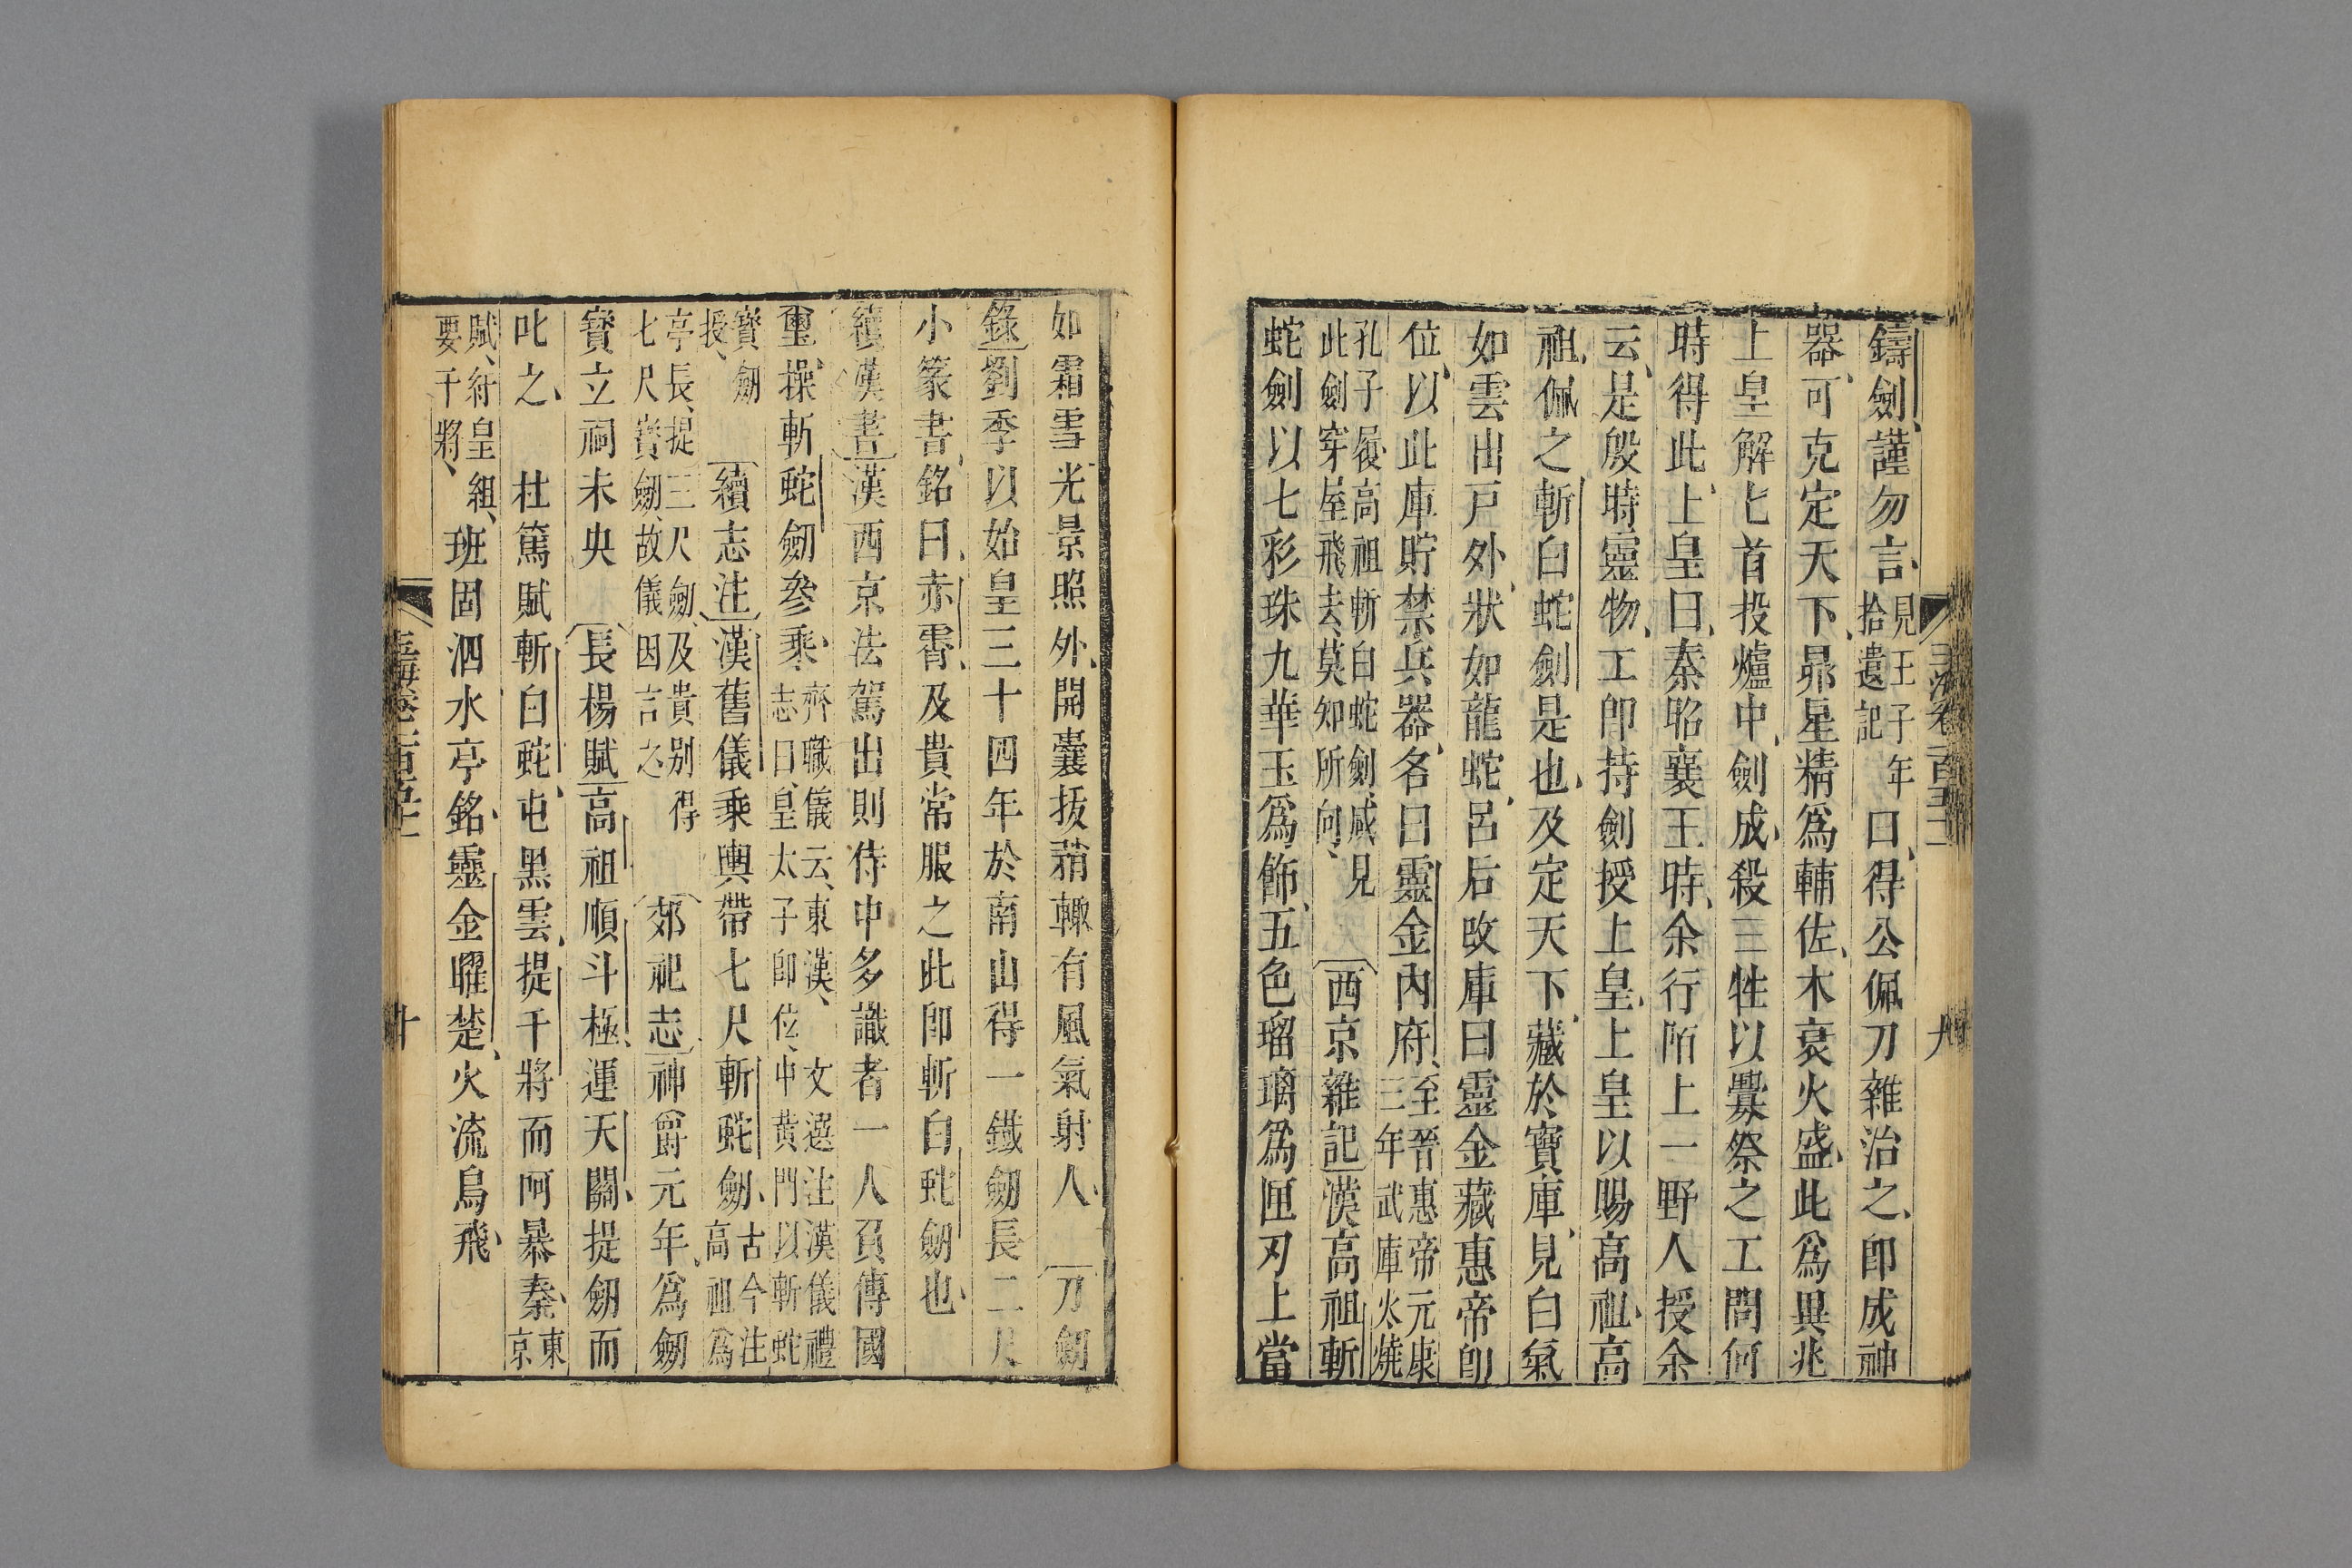 鑄劍謹勿言見王子年拾遺記曰得公佩刀雜治之卽成神
器可克定天下昴星精爲輔佐木衰火盛此爲異兆
上皇解匕首投爐中劍成殺三牲以釁祭之工問何
時得此上皇曰秦昭襄王時余行陌上一野人授余
云是殷時靈物工卽持劍授上皇上皇以賜高祖高
祖佩之斬白蛇劍是也及定天下藏於寶庫見白氣
如雲出戸外狀如龍蛇呂后改庫曰靈金藏惠帝卽
位以此庫貯禁兵器名曰靈金內府至晉惠帝元康三年武庫火燒
孔子履高祖斬白蛇劍咸見此劍穿屋飛去莫知所向西京雜記漢高祖斬
蛇劍以七彩珠九華玉爲飾五色瑠璃爲匣刃上當
如霜雪光景照外開囊拔鞘輙有風氣射人刀劒
錄劉季以始皇三十四年於南山得一鐵劒長二尺
小篆書銘曰赤霄及貴常服之此卽斬白蛇劒也
續漢書漢西京法駕出則侍中多識者一人負傳國
璽操斬蛇劒參乘齊職儀云東漢志曰皇太子卽位中黃門以斬蛇文選注漢儀禮
寶劒授續志注漢舊儀乘輿帶七尺斬蛇劒古今注高祖爲
亭長提三尺劒及貴別得七尺寶劒故儀因言之郊祀志神爵元年爲劒
寶立祠未央長楊賦高祖順斗極運天關提劒而
叱之杜篤賦斬白蛇屯黑雲提干將而呵暴秦東京
賦紆皇組要干將班固泗水亭銘靈金曜楚火流烏飛